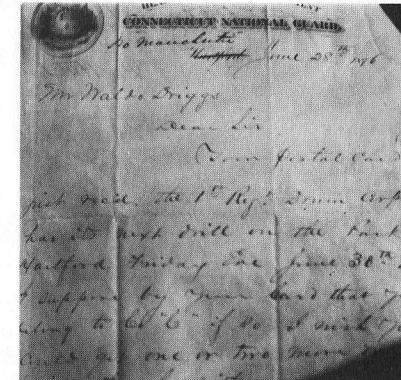 CONNECTICUT NATIONAL GUARD,
So Manchester
Hartford, June 28th 1876
Mr Waldo Driggs
Dear Sir
Your postal card
just recd. the 1st Regt Drum Corps
has its next drill on the Park
Hartford Friday Eve June 30th
I suppose by your card that
to Co "C" if so I wish
could get one or two more